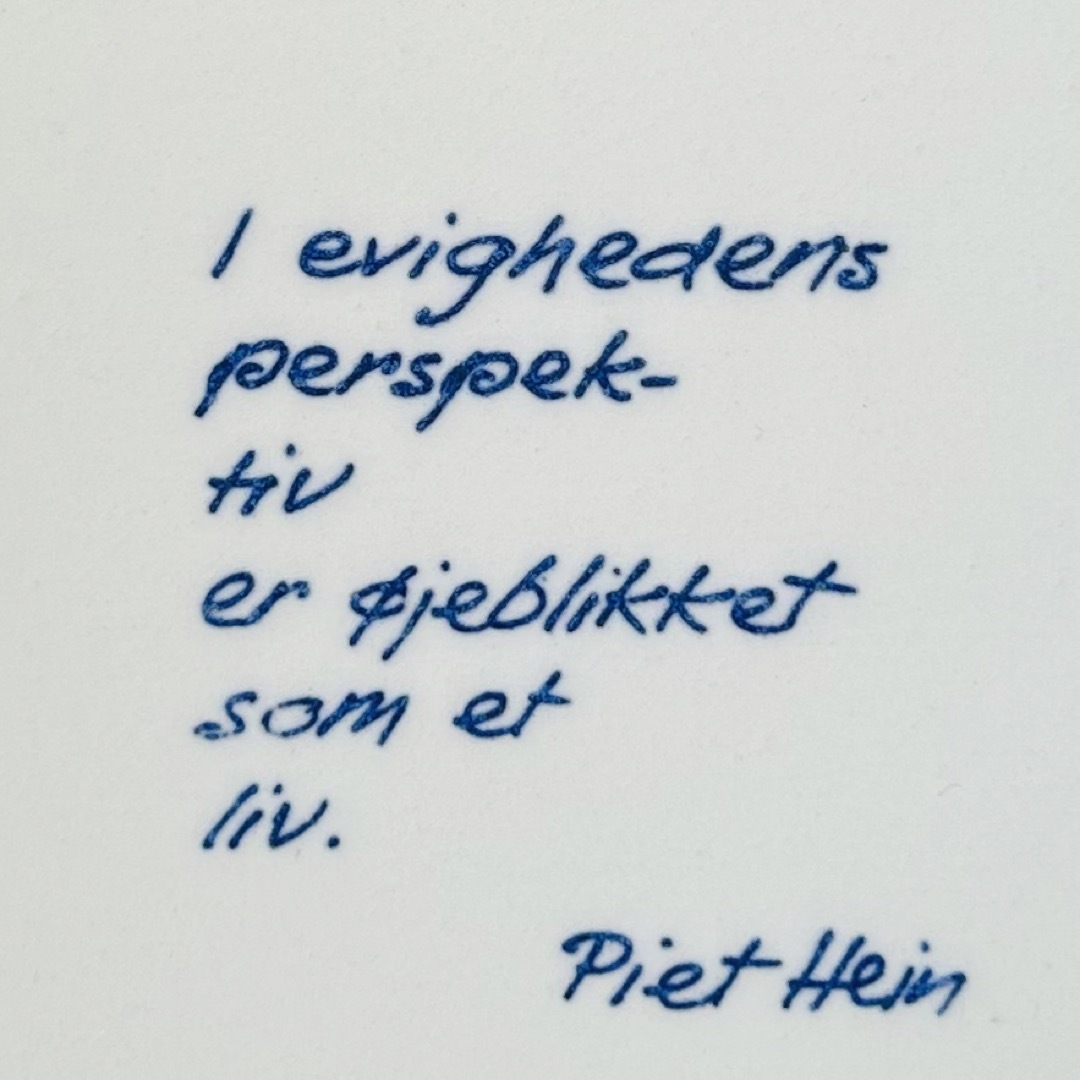 I evighedens
perspek-
tiv
er øjeblikket
som et
liv.
Piet Hein